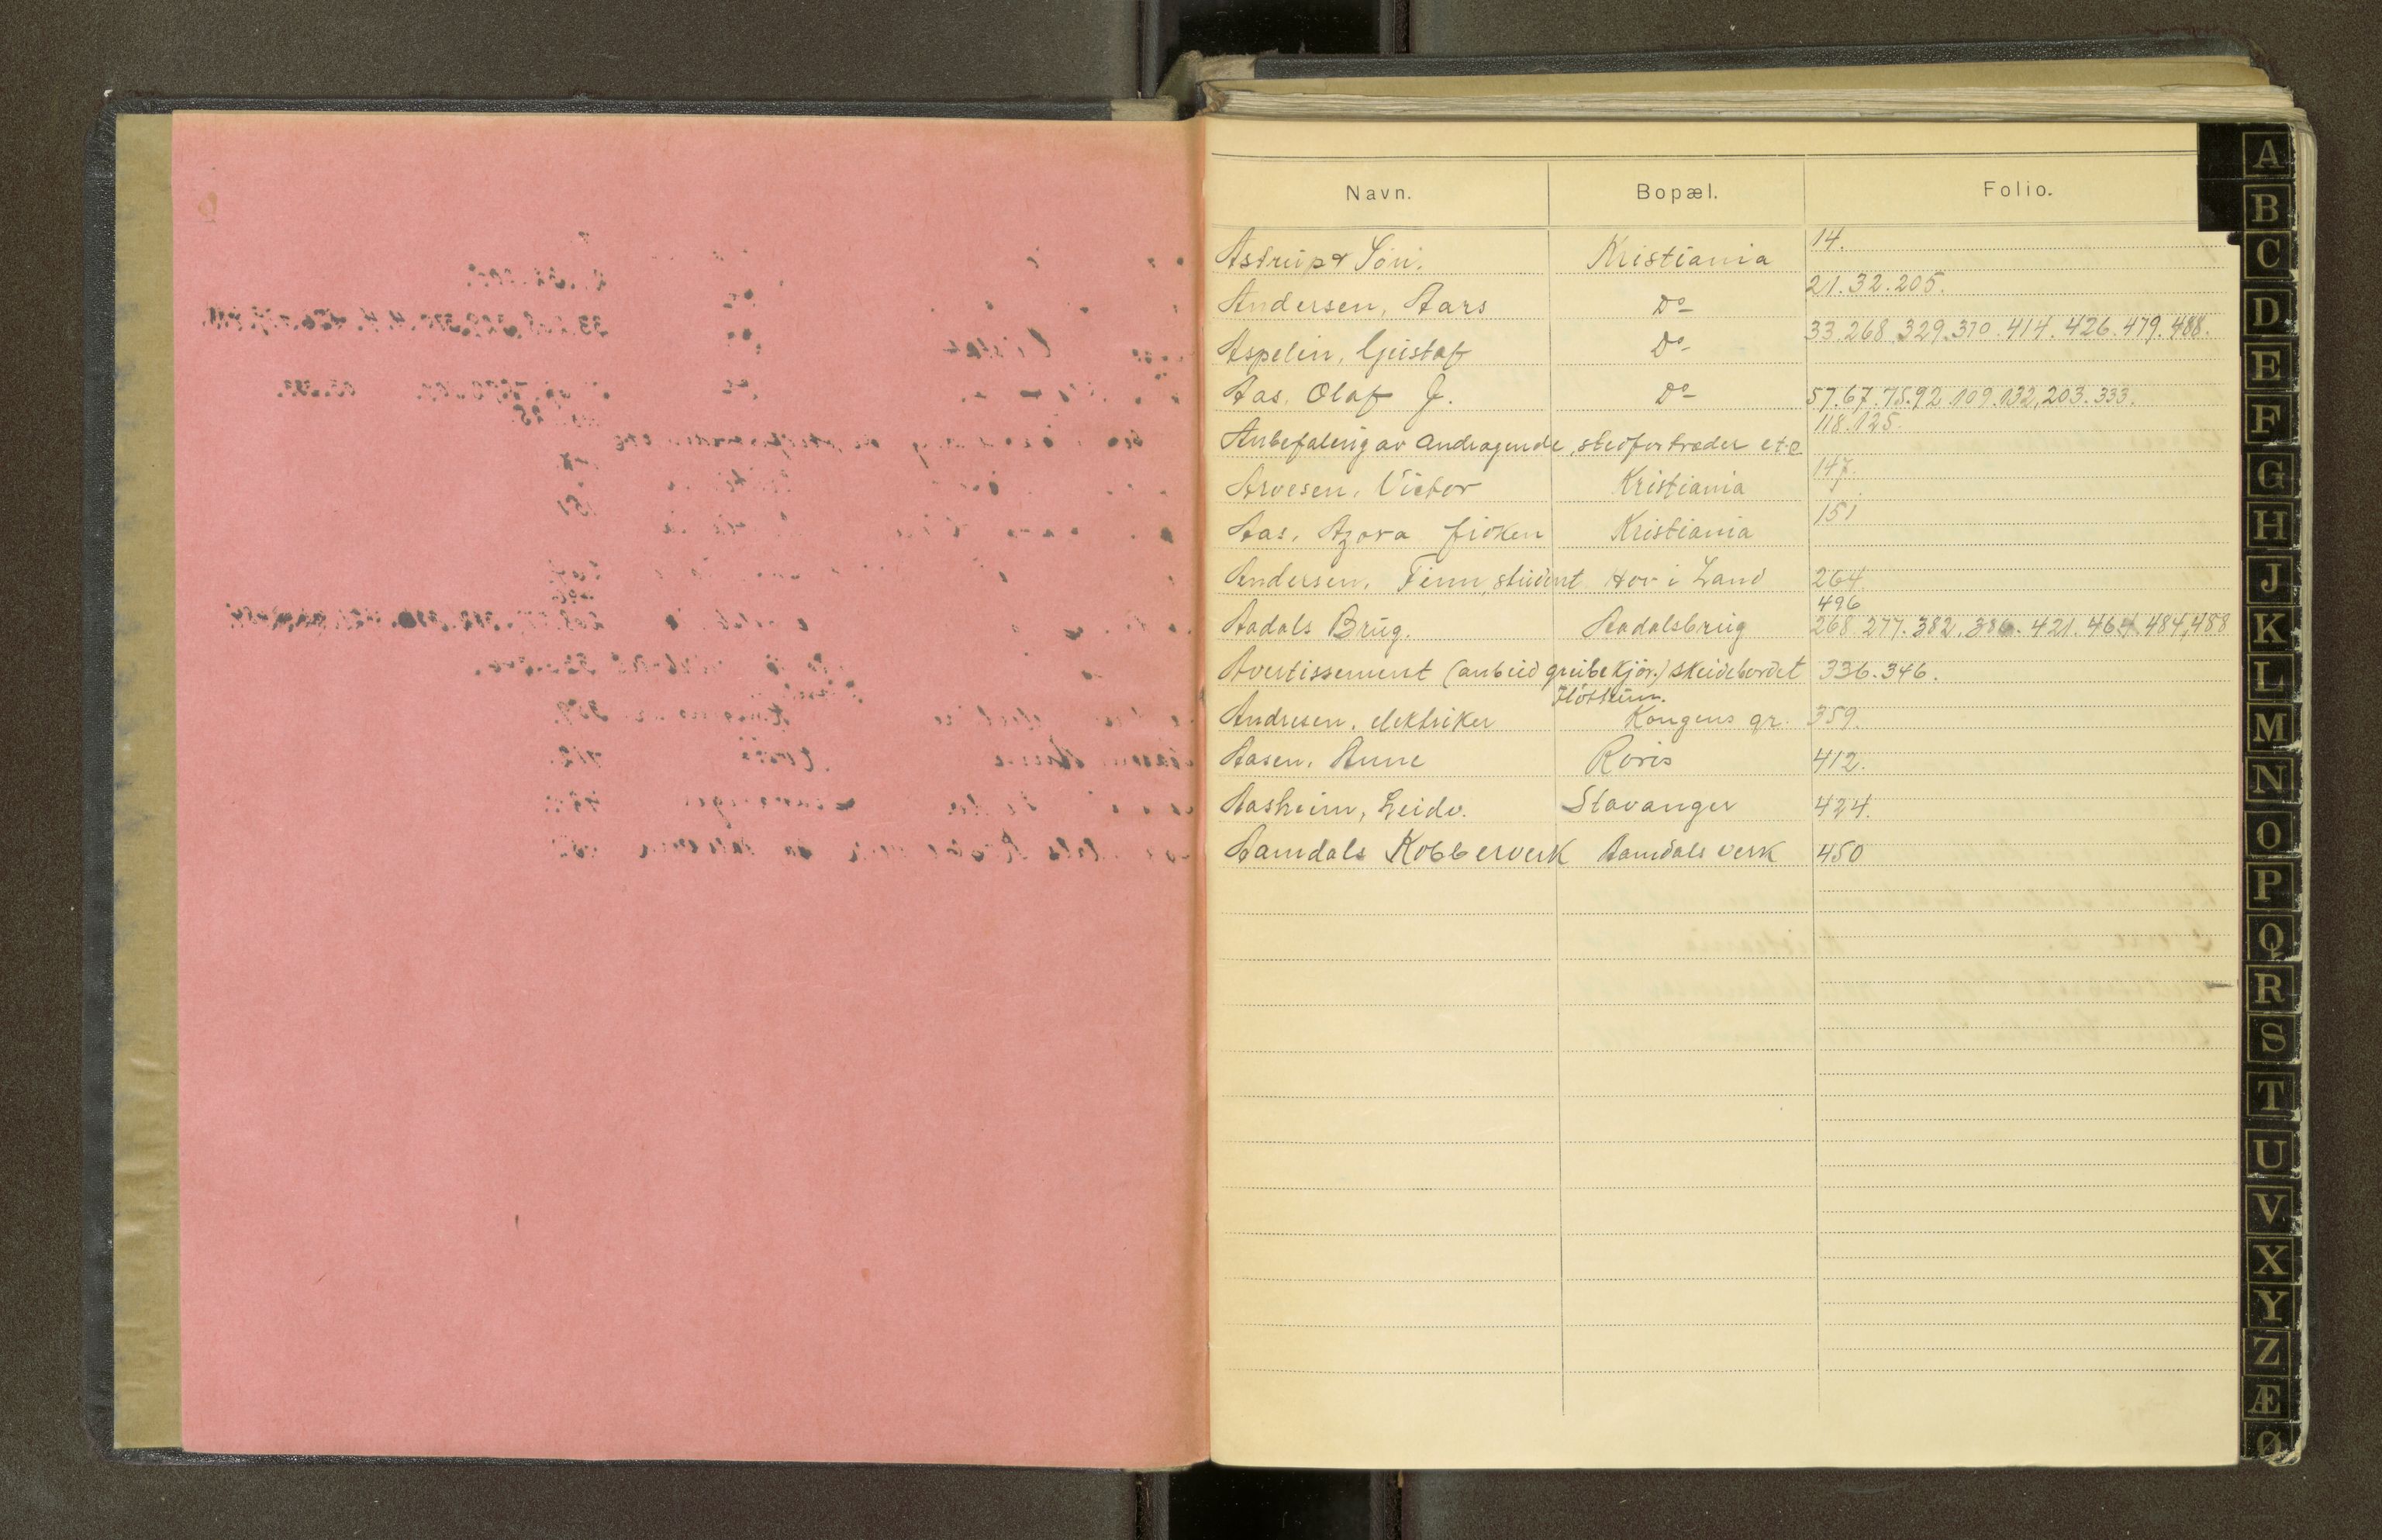 Navn. Bopæl. Folio.
Astrup & Sön. Kristiania 14.
Andersen, Aars Do 21.32.205.
Aspelin, Gustaf Do 33.268.329.370.414.426.479.488.
Aas, Olaf J. Do 57.67.75.92.109.132,203.333.
118.125.
Anbefaling av Andragende, stedfortræder etc
Arvesen, Victor Kristiania 147.
Aas, Azora frøken Kristiania 151
Andersen, Finn, student Hov i Land 264
496
Aadals Brug. Aadalsbrug 268.277.382.386.421.464.484,488
Avertissement ( gruibekjør.) skeidebordet 336.346.
Andresen, elektriker Kongens gr. 359.
Aasen, Anne Röris 412.
Aasheim, Leidv. Stavanger 424.
Aamdals Kobberverk Aamdals verk 450
A
B
C
D
E
F
G
H
J
K
L
M
N
O
P
Q
R
S
T
U
V
X
Y
Z
Æ
Ø